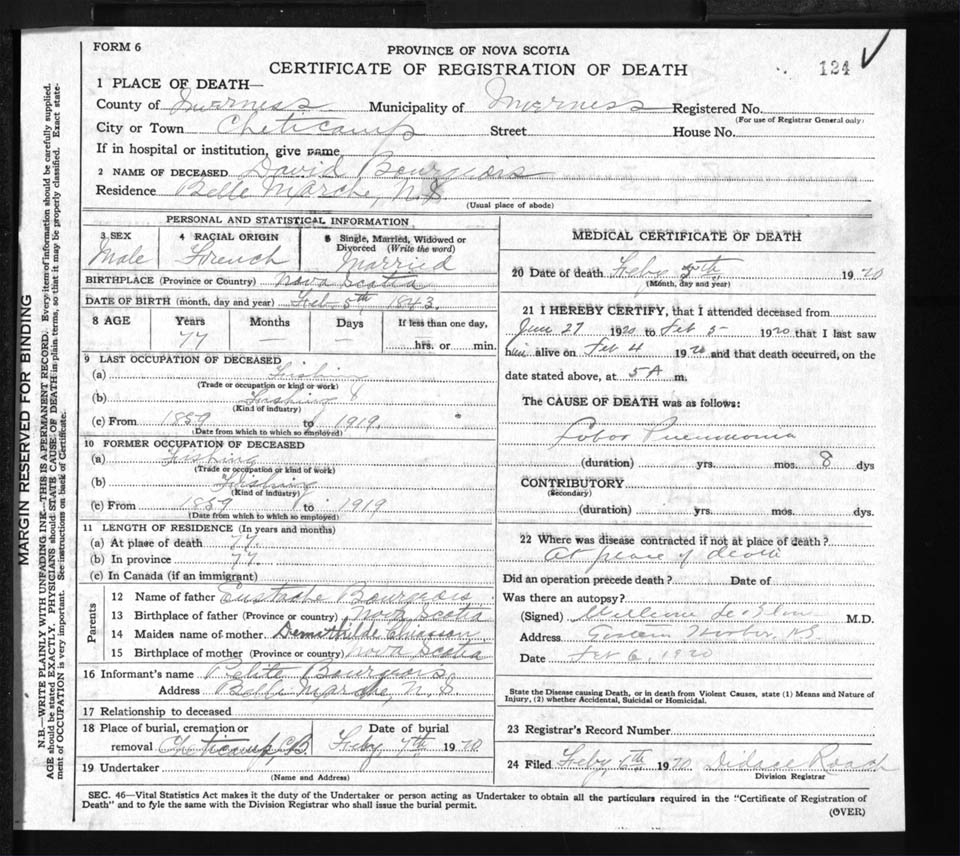 FORM 6
PROVINCE OF NOVA SCOTIA
CERTIFICATE OF REGISTRATION OF DEATH
124
1 PLACE OF DEATH—
County of Inverness Municipality of Inverness Registered No.
(For use of Registrar General only)
City or Town Cheticamp Street House No.
If in hospital or institution, give name
2 NAME OF DECEASED David Bourgeois
Residence Belle Marche, N.S.
(Usual place of abode)
PERSONAL AND STATISTICAL INFORMATION
3 SEX Male
4 RACIAL ORIGIN French
5 Single, Married, Widowed or Divorced (Write the word) Married
BIRTHPLACE (Province or Country) Nova Scotia
DATE OF BIRTH (month, day and year) Feb. 5th 1843.
8 AGE Years Months Days If less than one day,
77 — — hrs. or min.
9 LAST OCCUPATION OF DECEASED
(a) Fishing
(Trade or occupation or kind or work)
(b) Fishing
(Kind of industry)
(c) From 1859 to 1919.
(Date from which to which so employed)
10 FORMER OCCUPATION OF DECEASED
(a) Fishing
(Trade or occupation or kind of work)
(b) Fishing
(Kind of industry)
(c) From 1859 to 1919
(Date from which to which so employed)
11 LENGTH OF RESIDENCE (In years and months)
(a) At place of death 77.
(b) In province 77.
(c) In Canada (if an immigrant)
Parents
12 Name of father Eustache Bourgeois
13 Birthplace of father (Province or country) Nova Scotia
14 Maiden name of mother
15 Birthplace of mother (Province or country) Nova Scotia
16 Informant's name Bourgeois
Address Belle Marche, N.S
17 Relationship to deceased
18 Place of burial, cremation or removal Cheticamp, CB
Date of burial Feby 7th 1920
19 Undertaker
(Name and Address)
MEDICAL CERTIFICATE OF DEATH
20 Date of death Feby 5th 1920
(Month, day and year)
21 I HEREBY CERTIFY, that I attended deceased from
27 1920 to Feb 5 1920 that I last saw
him alive on Feb 4 1920 and that death occurred, on the
date stated above, at 5 A m.
The CAUSE OF DEATH was as follows:
Lobar Pneumonia
(duration) yrs. mos. 8 dys
CONTRIBUTORY
(Secondary)
(duration) yrs. mos. dys.
22 Where was disease contracted if not at place of death?
At place of death
Did an operation precede death? Date of
Was there an autopsy?
(Signed) M.D.
Address N.S.
Date Feb 6, 1920
State the Disease causing Death, or in death from Violent Causes, state (1) Means and Nature of
Injury, (2) whether Accidental, Suicidal or Homicidal.
23 Registrar's Record Number
24 Filed Feby 6th 1920
Division Registrar
SEC. 46—Vital Statistics Act makes it the duty of the Undertaker or person acting as Undertaker to obtain all the particulars required in the "Certificate of Registration of
Death" and to fyle the same with the Division Registrar who shall issue the burial permit.
(OVER)
MARGIN RESERVED FOR BINDING
N.B.—WRITE PLAINLY WITH UNFADING INK—THIS IS A PERMANENT RECORD. Every item of information should be carefully supplied.
AGE should be stated EXACTLY. PHYSICIANS should STATE CAUSE OF DEATH in plain terms, so that it may be properly classified. Exact state-
ment of OCCUPATION is very important. See instructions on back of Certificate.